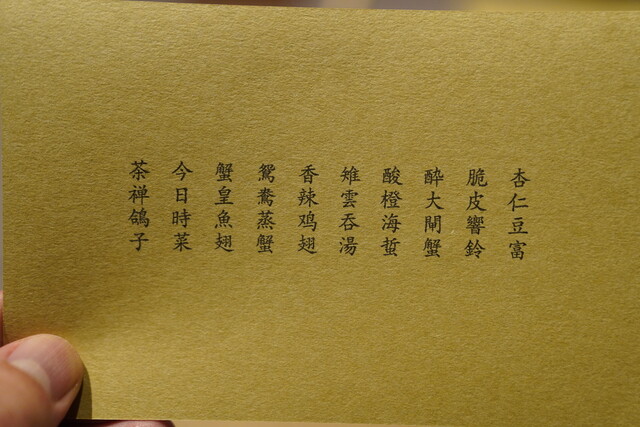 杏仁豆富
脆皮響鈴
醉大閘蟹
酸橙海蜇
雉雲吞湯
香辣鸡翅
鴛鴦蒸蟹
蟹皇魚翅
今日時菜
茶禅鴿子